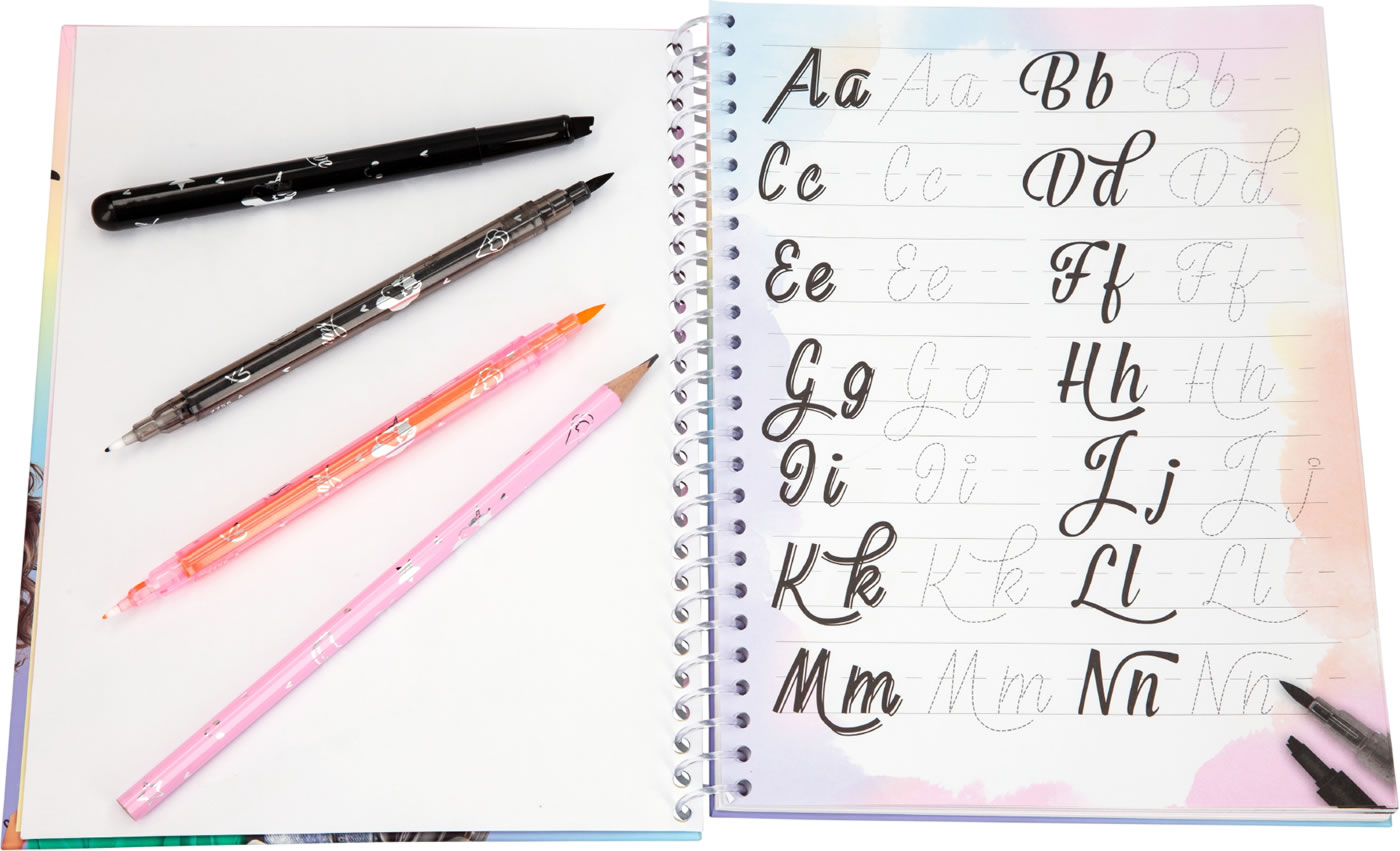 Aa Aa Bb Bb
Cc Cc Dd Dd
Ee Ee Ff Ff
Gg Gg Hh Hh
Ii Ii Jj Jj
Kk Kk Ll Ll
Mm Mm Nn Nn